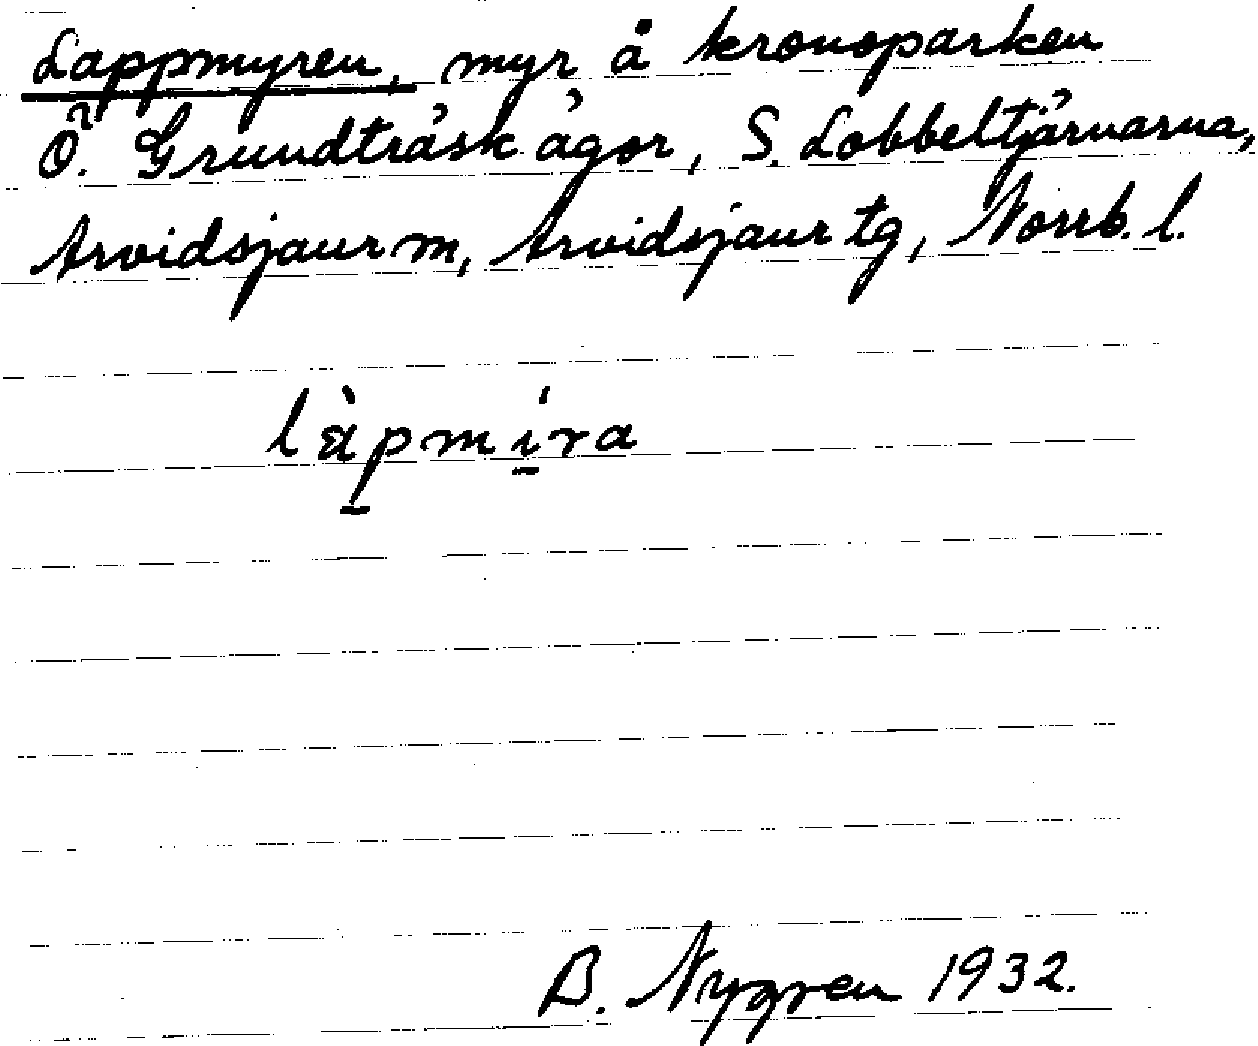 Lappmyren, myr å kronoparken
Ö. Grundträsk ägor, S. Lobbeltjärnarna,
Arvidsjaur m, Arvidsjaur tg, Norrb. l.
làpmi̱ra
B. Nygren 1932.